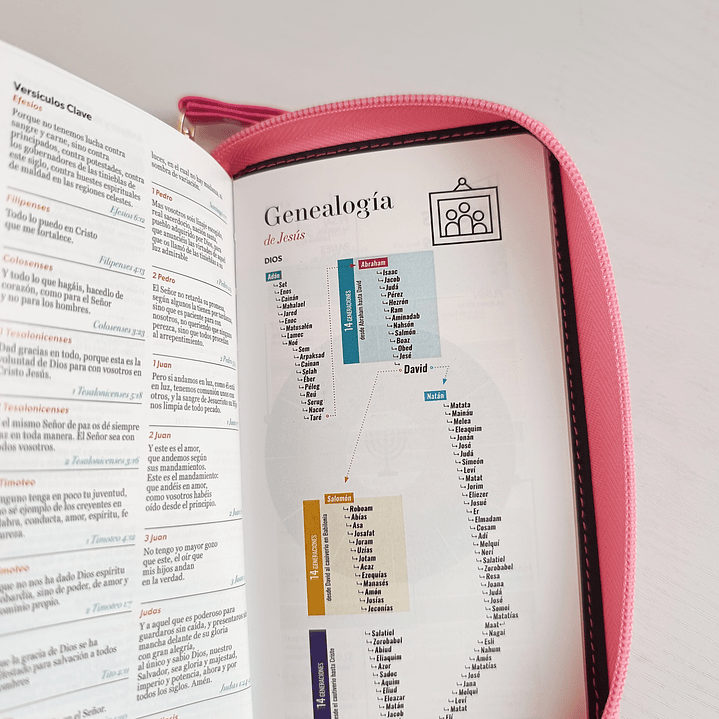 Versículos Clave
Efesios
Porque no tenemos lucha contra
sangre y carne, sino contra
principados, contra potestades, contra
los gobernadores de las tinieblas de
este siglo, contra huestes espirituales
de maldad en las regiones celestes.
Efesios 6:12
Filipenses
Todo lo puedo en Cristo
que me fortalece.
Filipenses 4:13
Colosenses
Y todo lo que hagáis, hacedlo de
corazón, como para el Señor
y no para los hombres.
Colosenses 3:23
1 Tesalonicenses
Dad gracias en todo, porque esta es la
voluntad de Dios para con vosotros en
Cristo Jesús.
1 Tesalonicenses 5:18
Tesalonicenses
el mismo Señor de paz os dé siempre
paz en toda manera. El Señor sea con
vosotros.
2 Tesalonicenses 3:16
Timoteo
tenga en poco tu juventud,
sino sé ejemplo de los creyentes en
conducta, amor, espíritu, fe
1 Timoteo 4:12
no nos ha dado Dios espíritu
de cobardía, sino de poder, de amor y
dominio propio.
2 Timoteo 1:7
la gracia de Dios se ha
manifestado para salvación a todos
Tito 2:11
en el Señor.
luces, en el cual no hay mudanza, ni
sombra de variación.
1 Pedro
Mas vosotros sois linaje escogido,
real sacerdocio, nación santa,
pueblo adquirido por Dios, para
que anunciéis las virtudes de aquel
que os llamó de las tinieblas a su
luz admirable
2 Pedro
El Señor no retarda su promesa,
según algunos la tienen por tardanza,
sino que es paciente para con
nosotros, no queriendo que ninguno
perezca, sino que todos procedan
al arrepentimiento.
1 Juan
Pero si andamos en luz, como él está
en luz, tenemos comunión unos con
otros, y la sangre de Jesucristo su Hijo
nos limpia de todo pecado.
2 Juan
Y este es el amor,
que andemos según
sus mandamientos.
Este es el mandamiento:
que andéis en amor,
como vosotros habéis
oído desde el principio.
3 Juan
No tengo yo mayor gozo
que este, el oír que
mis hijos andan
en la verdad.
Judas
Y a aquel que es poderoso para
guardaros sin caída, y presentaros sin
mancha delante de su gloria
con gran alegría,
al único y sabio Dios, nuestro
Salvador, sea gloria y majestad,
imperio y potencia, ahora y por
todos los siglos. Amén.
Judas 1:24
Genealogía
de Jesús
DIOS
Adán
Set
Enos
Cainán
Mahalael
Jared
Enoc
Matusalén
Lamec
Noé
Sem
Arpaksad
Cainan
Selah
Éber
Péleg
Reú
Serug
Nacor
Taré
14 GENERACIONES
desde Abraham hasta David
Abraham
Isaac
Jacob
Judá
Pérez
Hezrón
Ram
Aminadab
Nahsón
Salmón
Boaz
Obed
José
David
Natán
Matata
Mainán
Melea
Eleaquim
Jonán
José
Judá
Simeón
Leví
Matat
Jorim
Eliezer
Josué
Er
Elmadam
Cosam
Adi
Melqui
Neri
Salatiel
Zorobabel
Resa
Joana
Judá
José
Semei
Matatías
Maat
Nagai
Esli
Nahum
Amós
Matatías
José
Jana
Melqui
Leví
Matat
Elí
14 GENERACIONES
desde David al cautiverio en Babilonia
Salomón
Roboam
Abías
Asa
Josafat
Joram
Uzías
Jotam
Acaz
Ezequías
Manasés
Amón
Josías
Jeconías
14 GENERACIONES
desde el cautiverio hasta Cristo
Salatiel
Zorobabel
Abiud
Eliaquim
Azor
Sadoc
Aquim
Eliud
Eleazar
Matán
Jacob